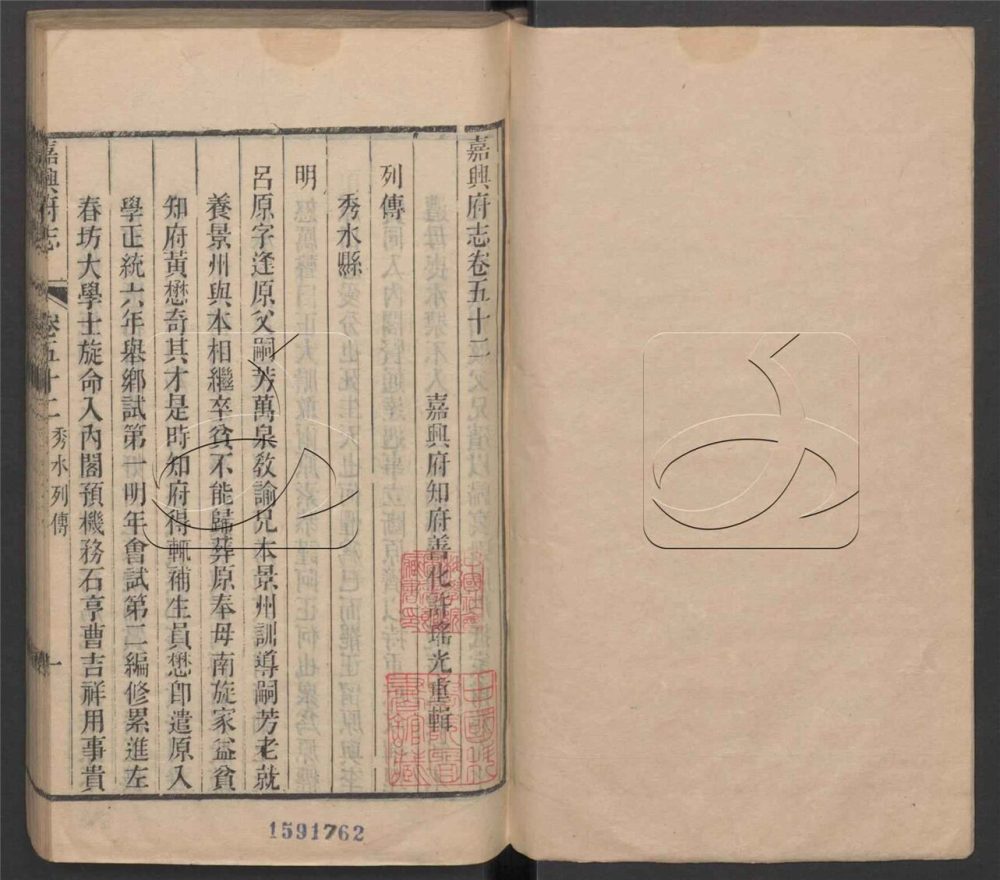 嘉興府志卷五十二
嘉興府知府善化許瑤光重輯
列傳
秀水縣
明
呂原字逢原父嗣芳萬泉敎諭兄本景州訓導嗣芳老就
養景州與本相繼卒貧不能歸葬原奉母南旋家益貧
知府黃懋奇其才是時知府得輒補生員懋卽遣原入
學正統六年舉鄉試第一明年會試第二編修累進左
春坊大學士旋命入內閣預機務石亨曹吉祥用事貴
嘉興府志
卷五十二
秀水列傳
一
1591762